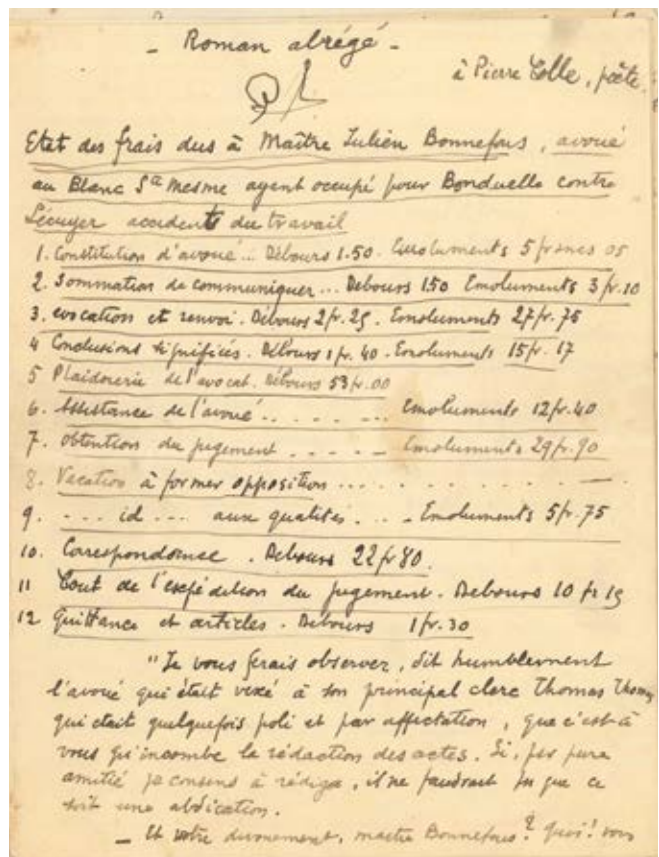 - Roman abrégé -
à Pierre Colle, poète.
Etat des frais dus à Maître Julien Bonnefous, avoué
au Blanc Sᵗᵉ Mesme ayant occupé pour Bonduelle contre
Lécuyer accidents du travail
1. Constitution d'avoué... Débours 1.50. Emoluments 5 francs 05
2. Sommation de communiquer... Debours 150 Emoluments 3 fr. 10
3. evocation et renvoi. Débours 2 fr. 25. Emoluments 27 fr. 75
4 Conclusions signifiées. Débours 1 fr. 40. Emoluments 15 fr. 17
5 Plaidoierie de l'avocat. Débours 53 fr. 00
6. Assistance de l'avoué . . . . . . . Emoluments 12 fr. 40
7. obtention du jugement . . . . . Emoluments 29 fr. 90
8. Vacation à former opposition ... . . . . . . . —
9. . - - . id . . . aux qualités . . . Emoluments 5 fr. 75
10. Correspondance . Debours 22 fr 80.
11 Cout de l'expédition du jugement. Debours 10 fr 15
12 Quittance et articles. Debours 1 fr. 30
"Je vous ferais observer, dit humblement
l'avoué qui était vexé à son principal clerc Thomas Thomas
qui etait quelquefois poli et par affectation, que c'est à
vous qu'incombe la rédaction des actes. Si, par pure
amitié je consens à rédiger, il ne faudrait pas que ce
soit une abdication.
_ Et votre devouement, maitre Bonnefous? quoi! vous